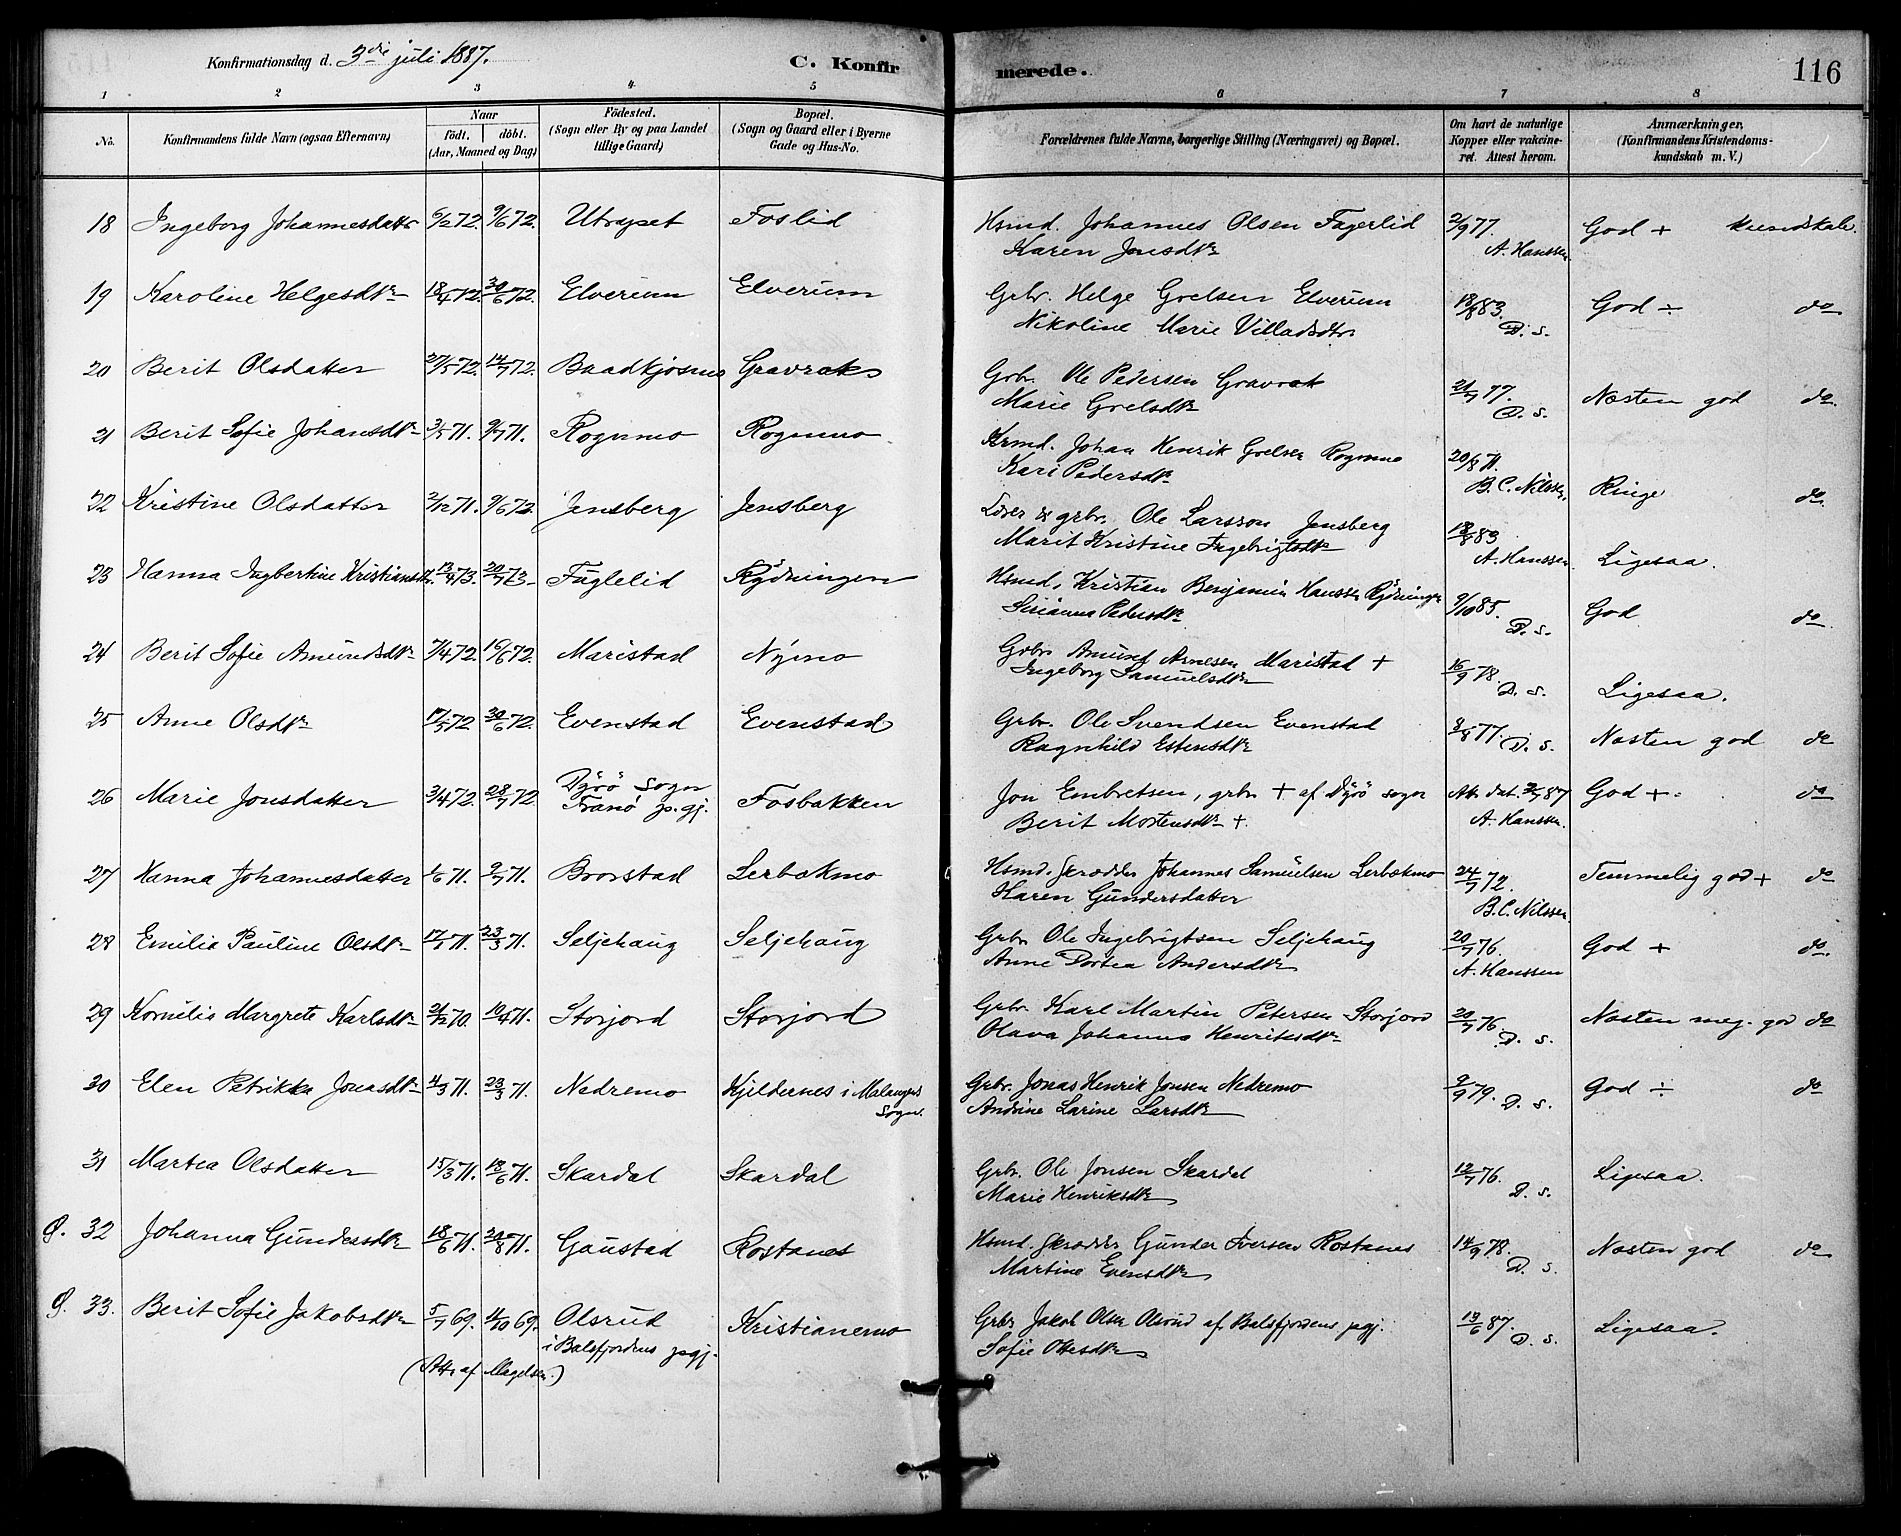 Konfirmationsdag d. 3die juli 1887. C. Konfirmerede. 116
1 2 3 4 5 6 7 8
No. Konfirmandens fulde Navn (ogsaa Efternavn) Naar födt. döbt. (Aar, Maaned og Dag) Födested. (Sogn eller By og paa Landet tillige Gaard) Bopæl. (Sogn og Gaard eller i Byerne Gade og Hus-No. Forældrenes fulde Navne, borgerlige Stilling (Næringsvei) og Bopæl. Om havt de naturlige Kopper eller vakcineret. Attest herom. Anmærkninger, (Konfirmandens Kristendomskundskab m. V.)
18 Ingeborg Johannesdatter 6/2 72. 9/6 72. Utræpet Foslid Hsmd. Johannes Olsen Fagerlid 2/9 77. God + kundskab.
Karen Jensdtr A. Hanssen
19 Karoline Helgesdtr 18/4 72. 30/6 72. Elverum Elverum Grbr. Helge Grelsen Elverum 13/8 83. God ÷ do
Nikoline Marie Villadsdtr. D. s.
20 Berit Olsdatter 27/5 72. 14/7 72. Baadkjosnes Gravrok Grbr. Ole Pedersen Gravrok 21/7 77. Næsten god do
Marie Grelsdtr D. s.
21 Berit Sofie Johansdtr 3/5 71. 9/7 71. Rognmo Rognmo Krmd. Johan Henrik Grelsen Rognmo 20/8 71.
Kari Pedersdtr B. C. Nilssen. Ringe do
22 Kristine Olsdatter 2/12 71. 9/6 72. Jensberg Jensberg Lærer & grbr. Ole Larsson Jensberg 18/8 83
Marit Kristine Ingebrigtsdtr A. Hanssen. Ligesaa.
23 Hanna Ingbertine Kristiansdtr. 13/4 73. 20/7 73. Fuglelid Rydningen Hsmd. Kristian Benjamin Hanssen Rydningen 9/10 85. God do
Sirianna Pedersdtr D. s.
24 Berit Sofie Amundsdtr 7/4 72. 16/6 72. Maristad Nymo Grbr Amund Arnesen Maristad + 16/9 78.
Ingeborg Samuelsdtr D. s. Ligesaa.
25 Anne Olsdtr 17/5 72 30/6 72. Evenstad Evenstad Grbr. Ole Svendsen Evenstad 8/8 77. D. s. Næsten god do
Ragnhild Estensdtr
26 Marie Jonsdatter 3/4 72. 28/7 72. Dyrö Sogn Tranö pr.gj. Fosbakken Jon Embretsen, grbr. + af Dyrö sogn Att. dat. 2/7 87 God + do
Berit Mortensdtr +. A. Hanssen.
27 Hanna Johannesdatter 1/6 71. 9/7 71. Brorstad Lerbakmo Hsmd. skrædder Johannes Samuelsen Lerbakmo 24/7 72. Temmelig god + do
Karen Gundersdatter B. C. Nilssen
28 Emilie Pauline Olsdtr 17/1 71. 23/3 71. Seljehaug Seljehaug Grbr. Ole Ingebrigtsen Seljehaug 20/7 76. God + do.
Anne Dortea Andersdtr A. Hanssen
29 Kornelia Margrete Karlsdtr 21/12 70. 10/4 71. Storjord Storjord Grbr. Karl Martin Petersen Storjord 20/7 76. Næsten meg. god do
Olava Johanna Henriksdtr D. s.
30 Elen Petrikke Jonasdtr 4/3 71. 23/3 71. Nedremo Kjeldernes i Malangens Sogn. Grbr. Jonas Henrik Jonsen Nedremo 9/9 79. D. s. God ÷ do
Andrine Larine Larsdtr
31 Martea Olsdatter 15/3 71. 18/6 71. Skardal Skardal Grbr. Ole Jonsen Skardal 12/7 76. Ligesaa.
Marie Henriksdtr D. s.
O. 32 Johanna Gundersdtr 18/6 71. 20/8 71. Gaustad Rostanes Hsmd. Skrædder Gunder Iversen Rostanes 14/9 78. Næsten god do
Martine Evensdtr D. s.
O. 33. Berit Sofie Jakobsdtr 5/7 69. 4/10 69. Olsrud Kristianemo Grbr Jakob Olsen Olsrud af Balsfjordens prgj. 13/6 87. D. s. Ligesaa.
i Balsfjordens prgj. Sofie Ottesdtr
(Att. af Magelsen.)